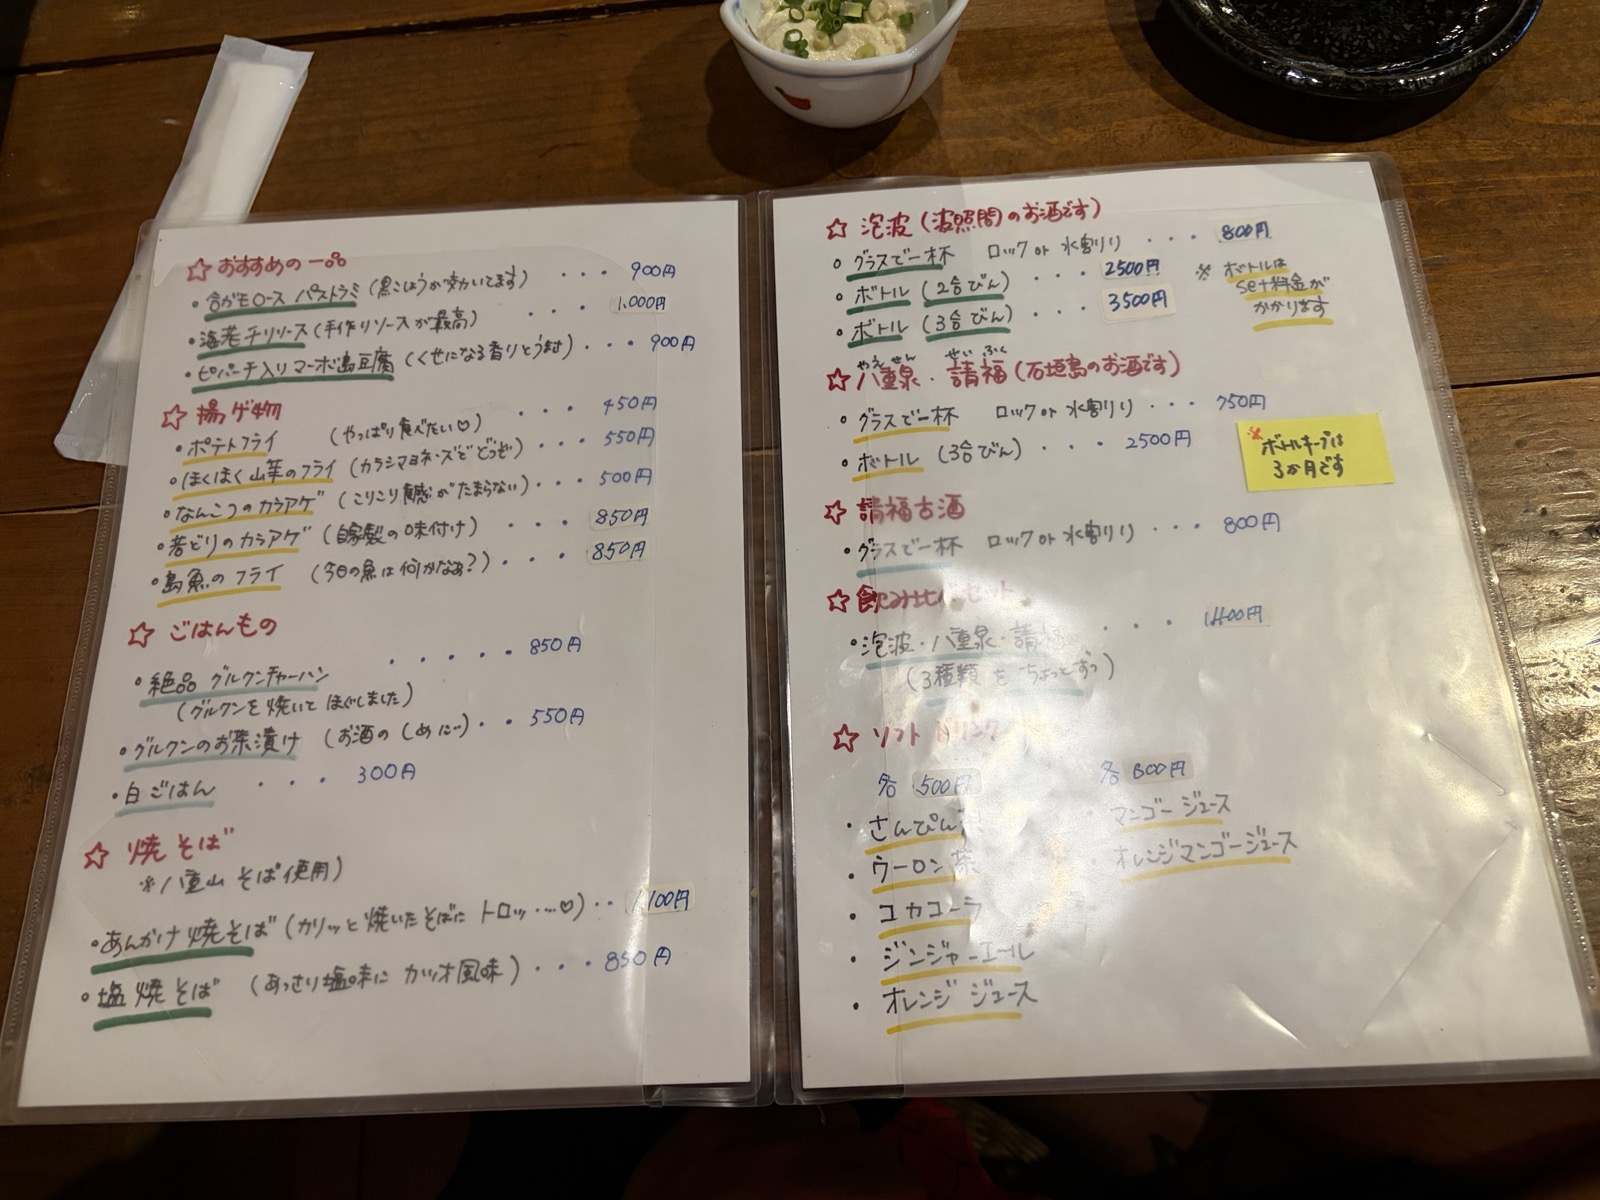 ☆ おすすめの一品
・合がモロース パストラミ (黒こしょうが効いてます) ・・・ 900円
・海老チリソース (手作りソースが最高) ・・・ 1,000円
・ピパーチ入りマーボ島豆腐 (くせになる香りとうまさ) ・・・ 900円
☆ 揚ゲ物
・ポテトフライ (やっぱり食べたい♡) ・・・ 450円
・ほくほく山芋のフライ (カラシマヨネーズでどうぞ) ・・・ 550円
・なんこつのカラアゲ (こりこり食感がたまらない) ・・・ 500円
・若どりのカラアゲ (自家製の味付け) ・・・ 850円
・島魚のフライ (今日の魚は何かなぁ?) ・・・ 850円
☆ ごはんもの
・絶品 グルクンチャーハン ・・・・・ 850円
(グルクンを焼いて ほぐしました)
・グルクンのお茶漬け (お酒の〆に) ・・ 550円
・白ごはん ・・・ 300円
☆ 焼そば
※八重山そば使用)
・あんかけ焼そば (カリッと焼いたそばに トロッ・・・・♡) ・・ 1,100円
・塩焼そば (あっさり塩味に カツオ風味) ・・・ 850円
☆ 泡波 (波照間のお酒です)
○ グラスで一杯 ロック or 水割り ・・・ 800円
○ ボトル (2合びん) ・・・ 2500円
○ ボトル (3合びん) ・・・ 3500円
※ ボトルは
set料金が
かかります
やえせん せいふく
☆ 八重泉・請福 (石垣島のお酒です)
・グラスで一杯 ロック or 水割り ・・・ 750円
・ボトル (3合びん) ・・・ 2500円
※ボトルキープは
3か月です
☆ 請福古酒
・グラスで一杯 ロック or 水割り ・・・ 800円
☆ 飲み比べセット
・泡波・八重泉・請福 ・・・
(3種類を ちょっとずつ)
☆ ソフトドリンク
各 500円
・さんぴん
・ウーロン茶
・コカコーラ
・ジンジャーエール
・オレンジ ジュース
各 600円
・マンゴー ジュース
・オレンジマンゴージュース